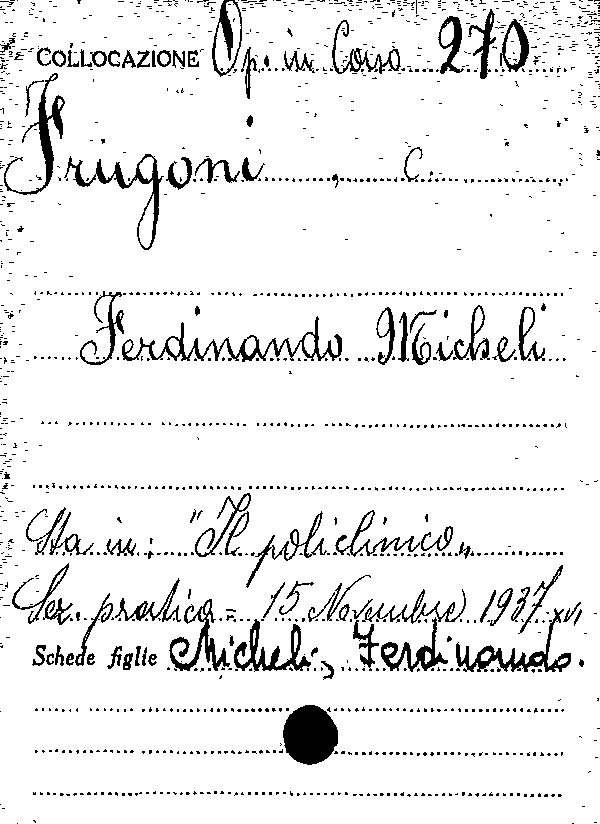 COLLOCAZIONE Op. in Corso 270
Frugoni, C.
Ferdinando Micheli
Sta in: "Il policlinico„
Sez. pratica = 15 Novembre 1937 XVI
Schede figlie Micheli, Ferdinando.